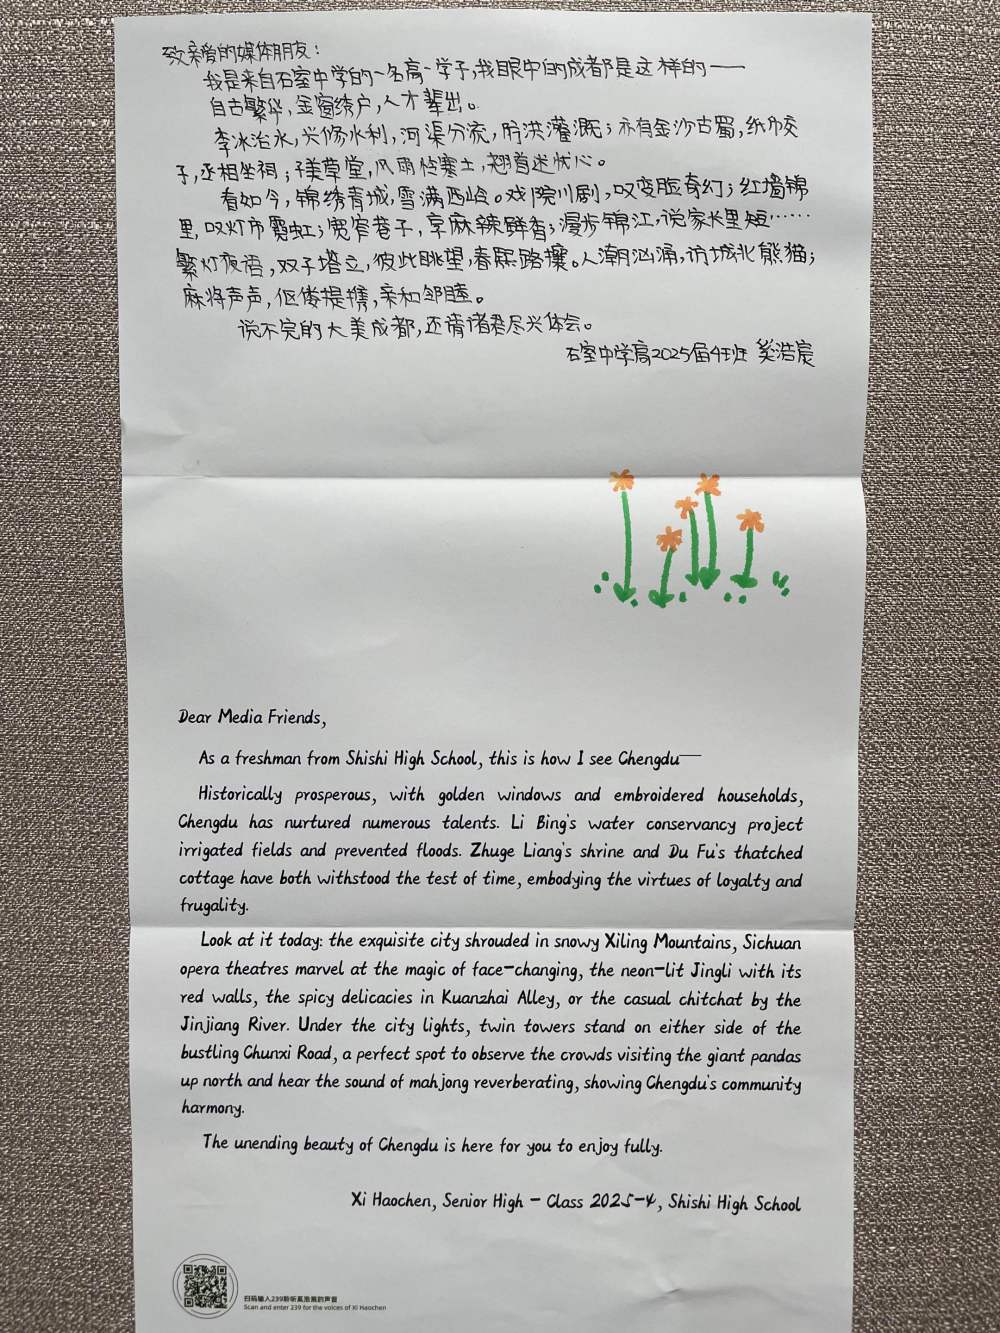 致亲爱的媒体朋友：
我是来自石室中学的一名高一学子，我眼中的成都是这样的——
自古繁华，金窗绣户，人才辈出。
李冰治水，兴修水利，河渠分流，防洪灌溉；亦有金沙古蜀，纸币交
子，丞相坐祠；子美草堂，风雨怆寒士，翘首述忧心。
看如今，锦绣青城，雪满西岭。戏院川剧，叹变脸奇幻；红墙锦
里，叹灯市霓虹；宽窄巷子，享麻辣鲜香；漫步锦江，说家长里短……
繁灯夜语，双子塔立，彼此眺望，春熙路攘。人潮汹涌，访城北熊猫；
麻将声声，伛偻提携，亲和邻睦。
说不完的大美成都，还请诸君尽兴体会。
石室中学高2025届4班 奚浩宸
Dear Media Friends,
As a freshman from Shishi High School, this is how I see Chengdu—
Historically prosperous, with golden windows and embroidered households,
Chengdu has nurtured numerous talents. Li Bing's water conservancy project
irrigated fields and prevented floods. Zhuge Liang's shrine and Du Fu's thatched
cottage have both withstood the test of time, embodying the virtues of loyalty and
frugality.
Look at it today: the exquisite city shrouded in snowy Xiling Mountains, Sichuan
opera theatres marvel at the magic of face-changing, the neon-lit Jingli with its
red walls, the spicy delicacies in Kuanzhai Alley, or the casual chitchat by the
Jinjiang River. Under the city lights, twin towers stand on either side of the
bustling Chunxi Road, a perfect spot to observe the crowds visiting the giant pandas
up north and hear the sound of mahjong reverberating, showing Chengdu's community
harmony.
The unending beauty of Chengdu is here for you to enjoy fully.
Xi Haochen, Senior High - Class 2025-4, Shishi High School
扫码输入239聆听奚浩宸的声音
Scan and enter 239 for the voices of Xi Haochen